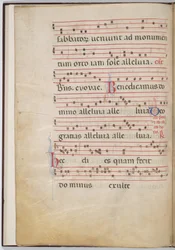 sabbatorum veniunt ad monumen
tum orto iam sole alleluia.
Benedicamus do
mino alleluia alle luia Deo
gratias alleluia alle luia.
Hec di es quam fecit
do minus exulte